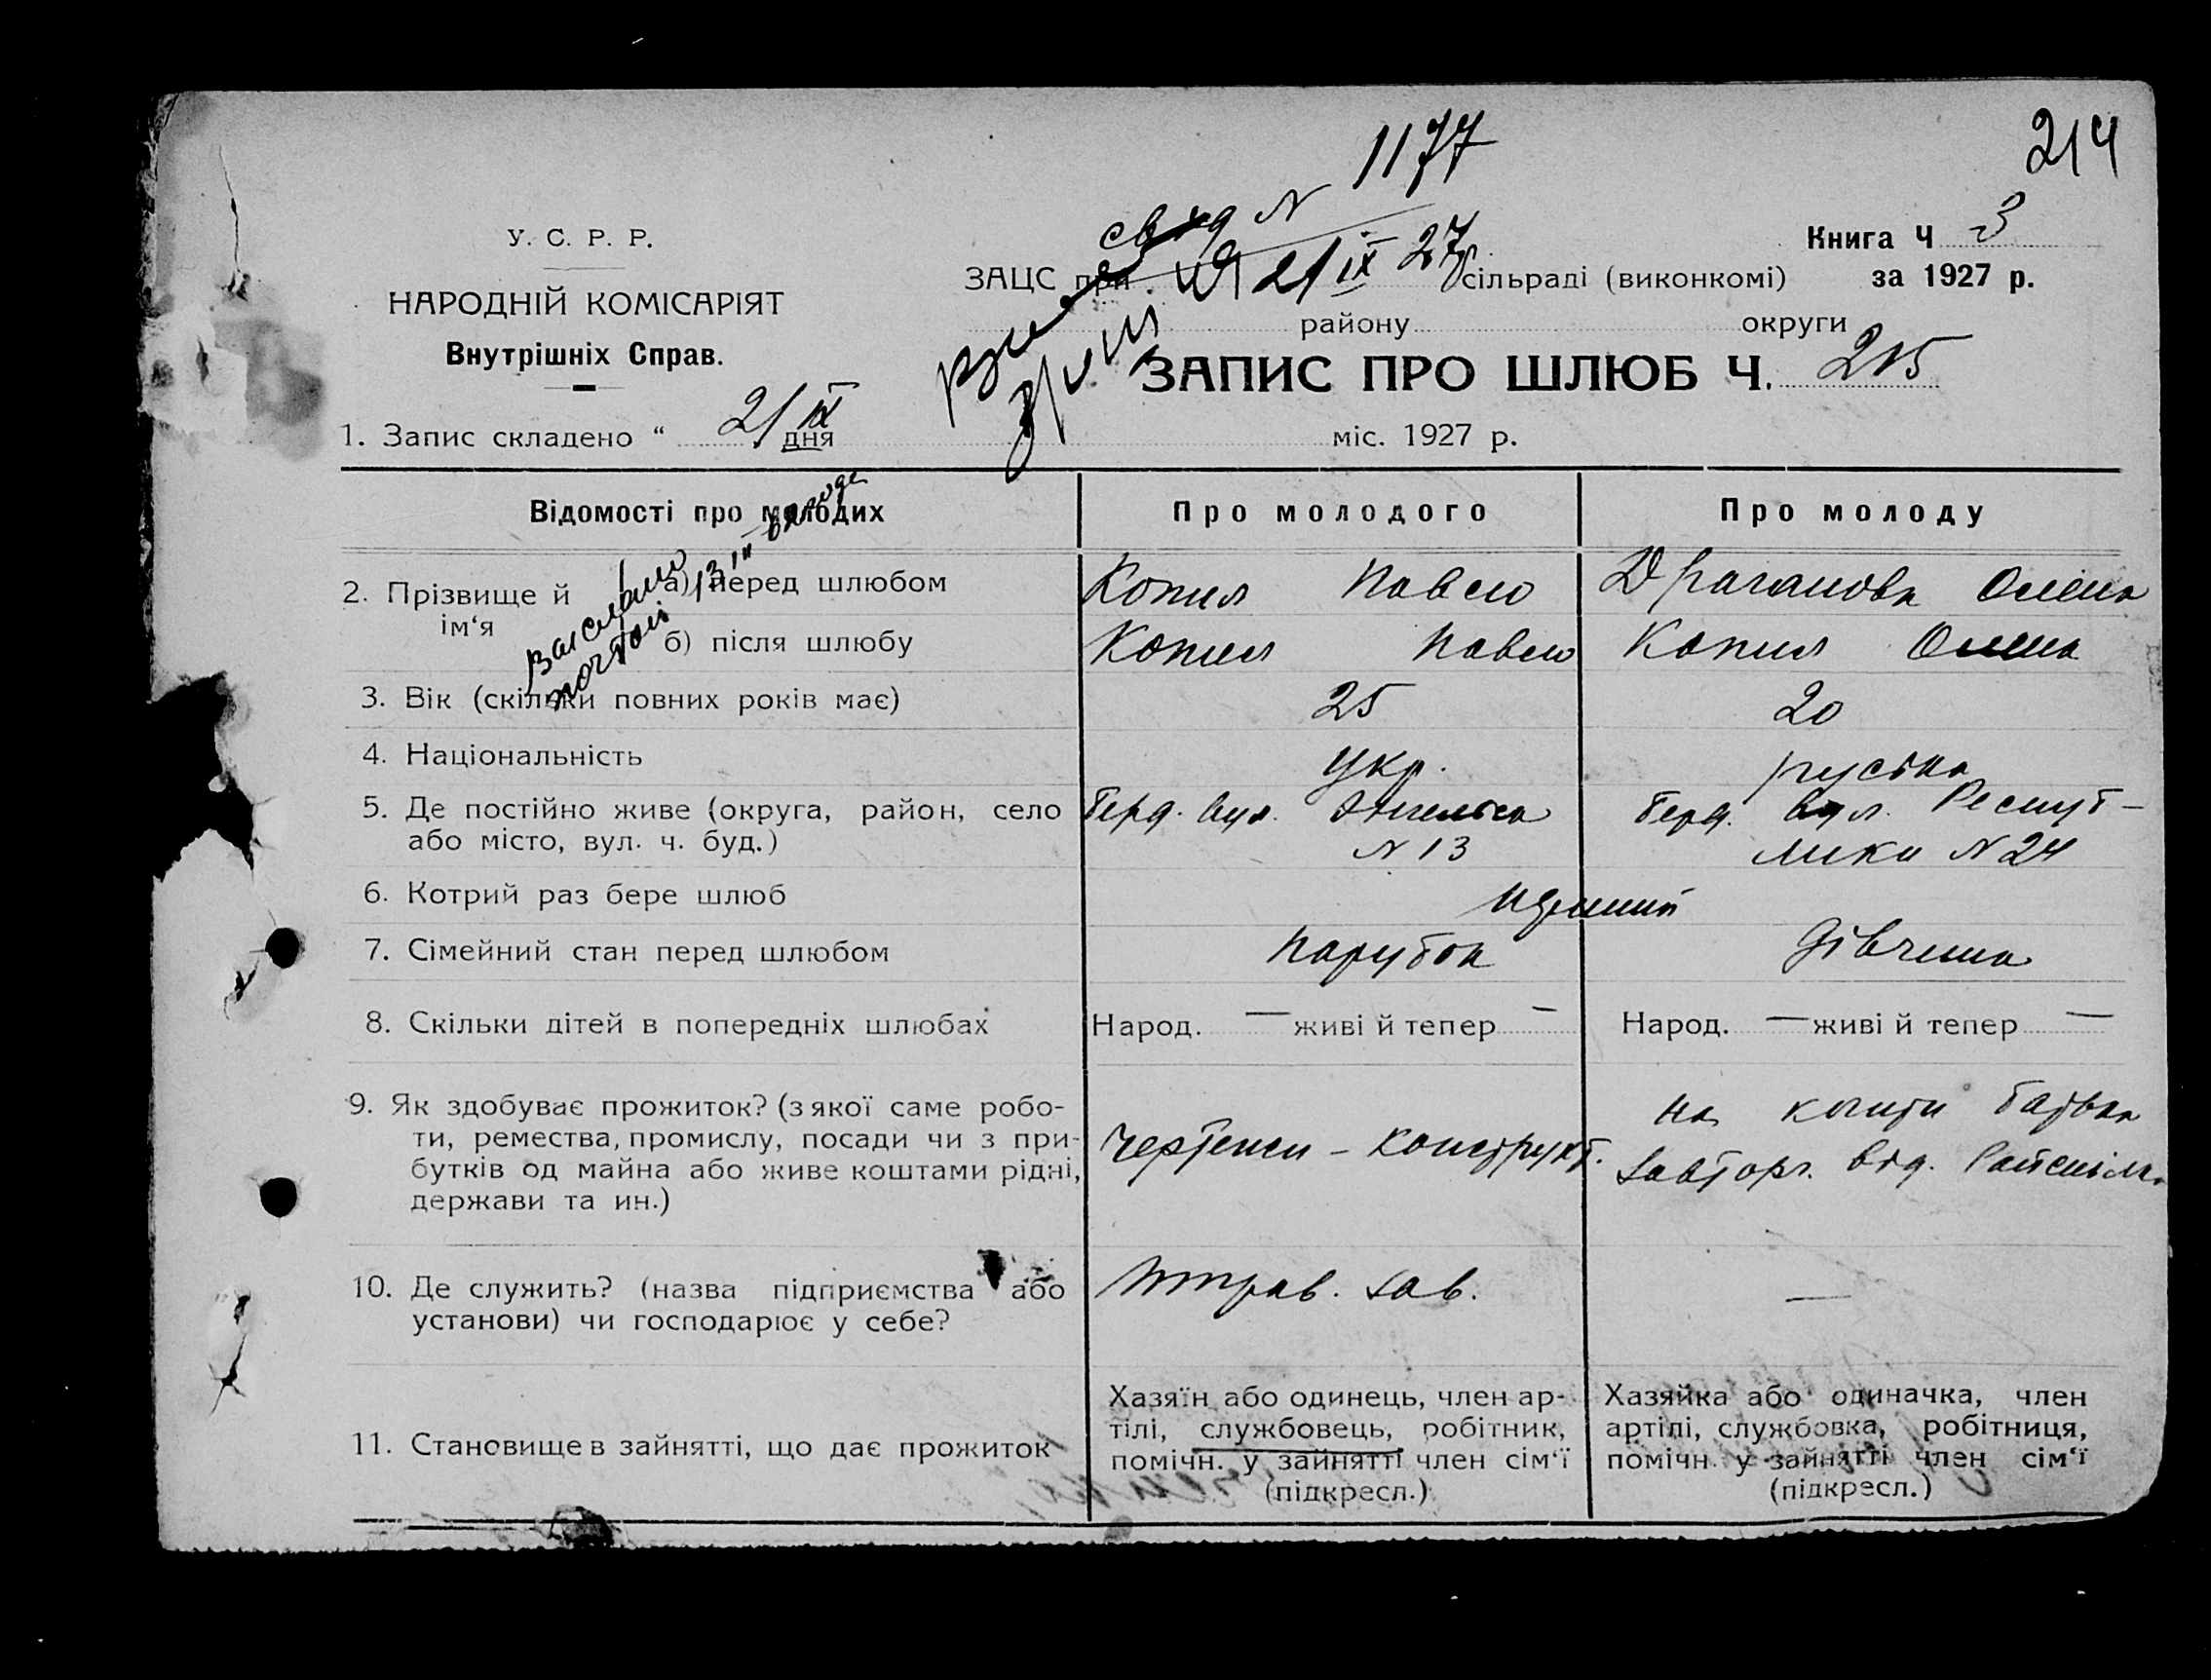 1177
214
свид N
У. С. Р. Р.
Книга Ч 3
ЗАЦС при 21 IX 27 сільраді (виконкомі)
за 1927 р.
НАРОДНІЙ КОМІСАРІЯТ
району округи
Внутрішніх Справ.
ЗАПИС ПРО ШЛЮБ Ч. 215
1. Запис складено “ 21 IX дня міс. 1927 р.
Відомості про молодих
Про молодого
Про молоду
2. Прізвище й ім‘я
а) перед шлюбом
Копил Павло
Драганова Олена
б) після шлюбу
Копил Павло
Копил Олена
3. Вік (скільки повних років має)
25
20
4. Національність
Укр.
русска
5. Де постійно живе (округа, район, село
або місто, вул. ч. буд.)
Берд. вул. Энгельса
N 13
Берд. вул. Респуб-
лики N 24
6. Котрий раз бере шлюб
7. Сімейний стан перед шлюбом
парубок
дівчина
8. Скільки дітей в попередніх шлюбах
Народ. — живі й тепер —
Народ. — живі й тепер —
9. Як здобуває прожиток? (з якої саме робо-
ти, ремества, промислу, посади чи з при-
бутків од майна або живе коштами рідні,
держави та ин.)
Чертежн - Конструкт.
на кошти батька
Завторг. від.
10. Де служить? (назва підприємства або
установи) чи господарює у себе?
зав.
—
11. Становище в зайнятті, що дає прожиток
Хазяїн або одинець, член ар-
тілі, службовець, робітник,
помічн. у зайнятті член сім‘ї
(підкресл.)
Хазяйка або одиначка, член
артілі, службовка, робітниця,
помічн. у зайнятті член сім‘ї
(підкресл.)